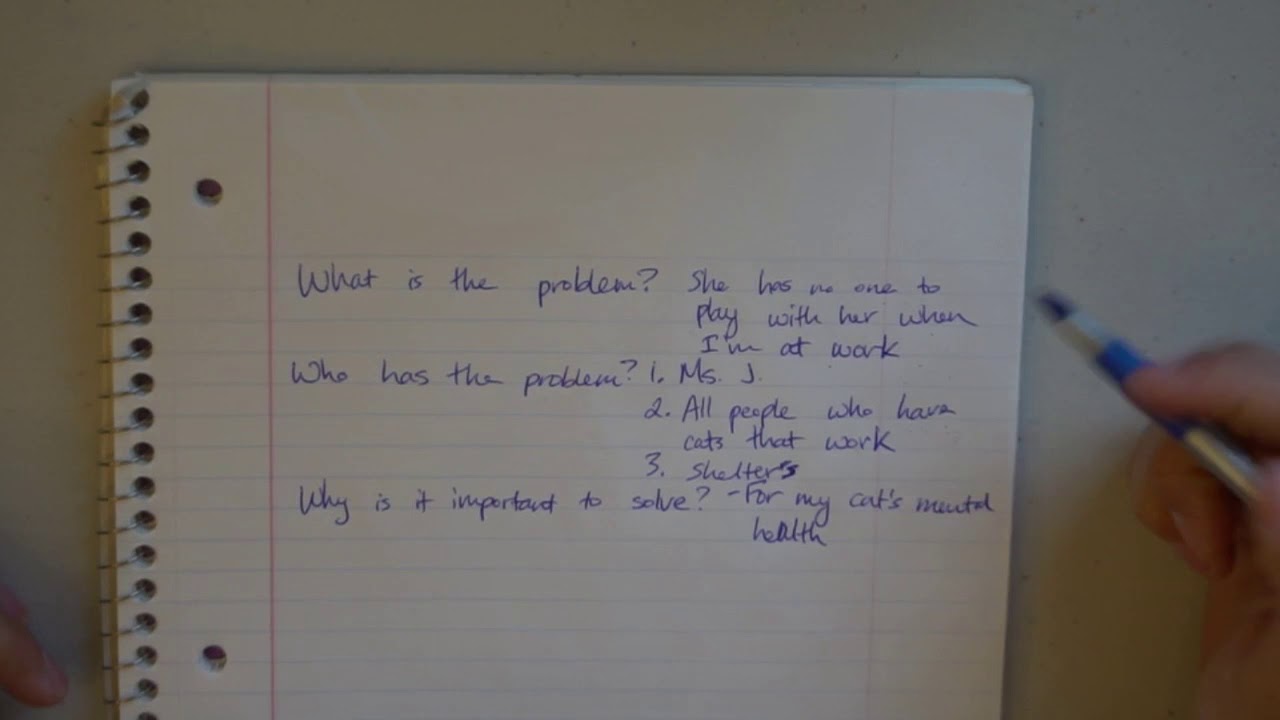 What is the problem? She has no one to
play with her when
I'm at work
Who has the problem? 1. Ms. J.
2. All people who have
cats that work
3. Shelters
Why is it important to solve? - For my cat's mental
health